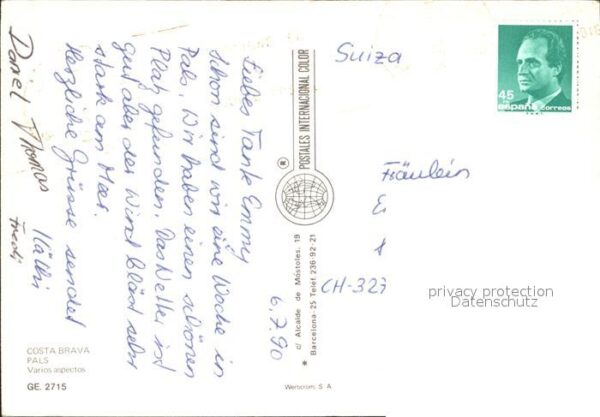 Liebes Tante Emmy
Schon sind wir eine Woche in
Pals. Wir haben einen schönen
Platz gefunden. Das Wetter ist
gut aber der Wind bläst sehr
stark am Meer.
Herzliche Grüsse sendet
Käthi
Fredi
Daniel Thomas
6.7.90
COSTA BRAVA
PALS
Varios aspectos
GE. 2715
POSTALES INTERNACIONAL COLOR
c/ Alcalde de Móstoles, 19
Barcelona-25 Telef. 236 92 21
Suiza
45
españa correos
Fräulein
E
CH-327
privacy protection
Datenschutz